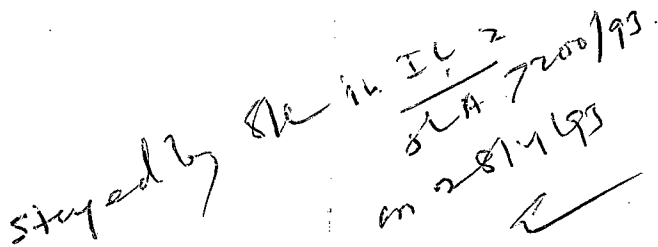 stayed by S/C in IL 2
SLA 7200/93.
on 28/4/93